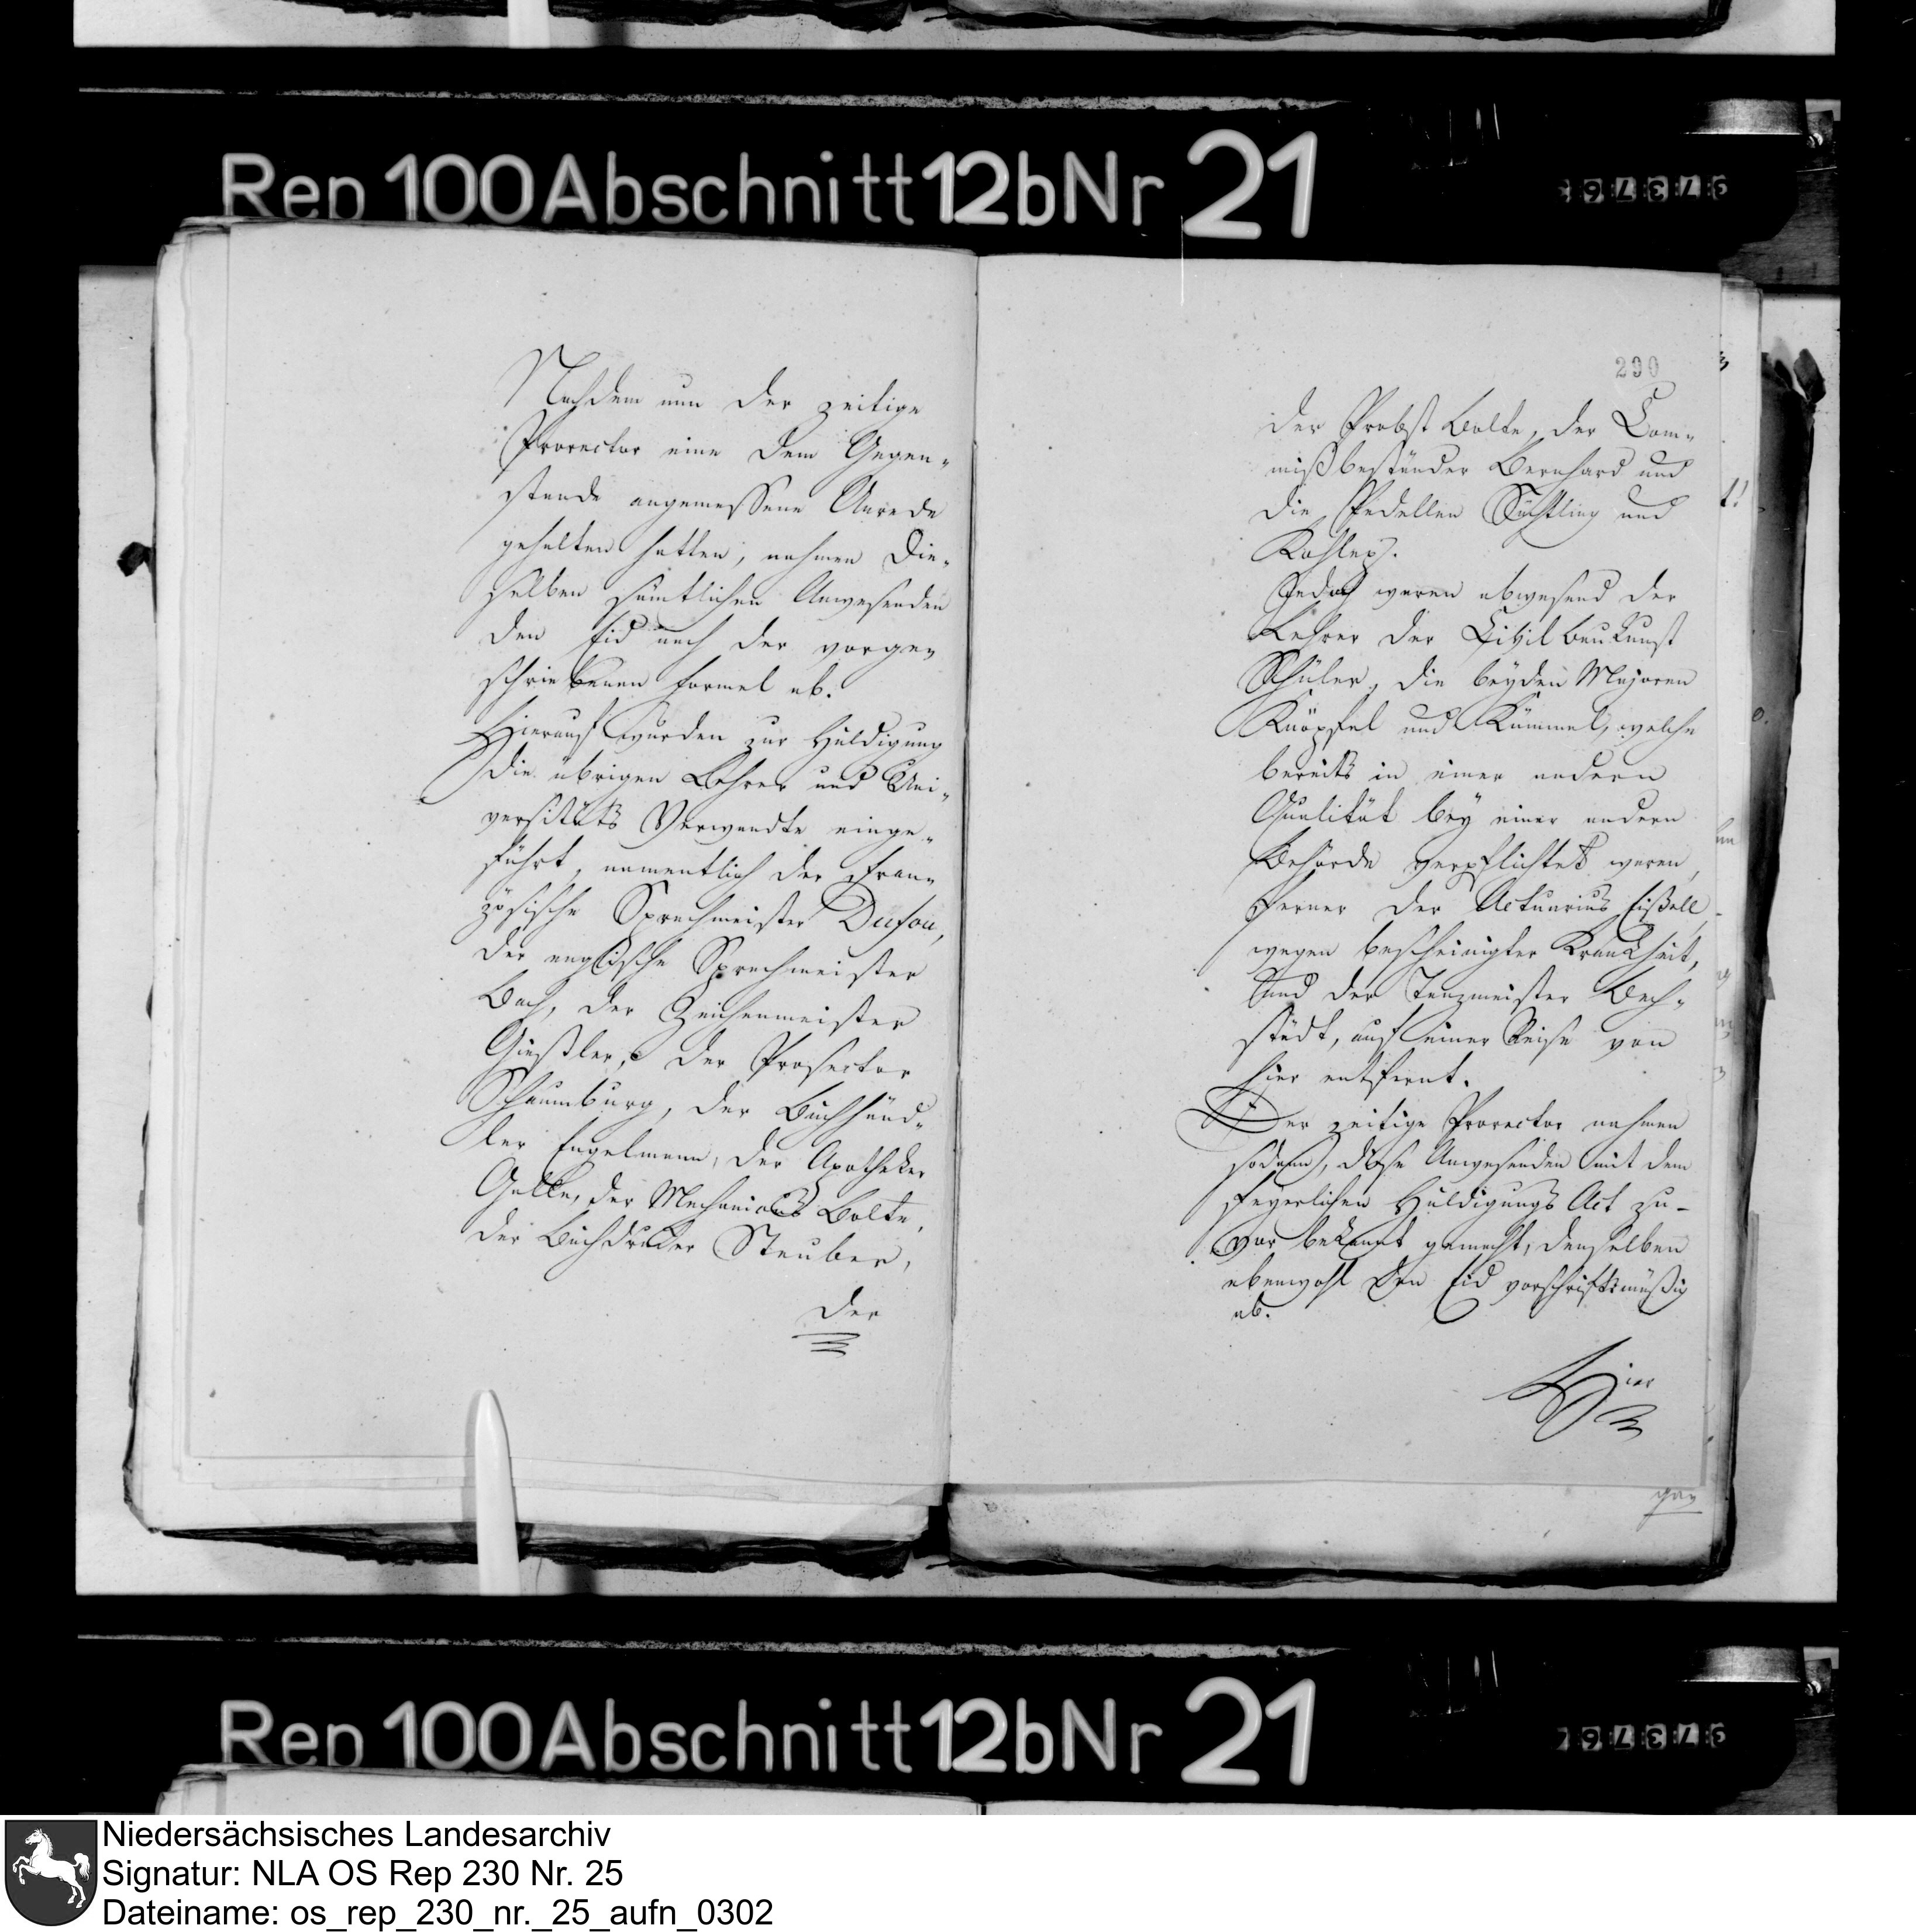 Rep 100 Abschnitt 12b Nr 21
Nachdem nun der zeitige
Prorector eine dem Gegen-
stande angemessene Anrede
gehalten hatten, nahmen Die-
selben sämtlichen Anwesenden
den Eid nach der vorge-
schriebenen Formel ab.
Hierauf wurden zur Huldigung
die übrigen Lehrer und Uni-
versitäts Verwandte einge-
führt, namentlich der Fran-
zösische Sprachmeister Dufou,
der englische Sprachmeister
Bach, der Zeichenmeister
Gießler, der Prosector
Schaumburg, der Buchhänd-
ler Engelmann, der Apotheker
der Mechanicus Bolte,
der Buchdrucker Steuber,
der
290
der Probst Bolte, der Com-
mißbeständer Bernhard und
die Pedellen und
Kahler.
Jedoch waren abwesend der
Lehrer der Civil Baukunst
Schüler, die beyden Majoren
Knöpfel und Kümmel, welche
bereits in einer andern
Qualität bey einer andern
Behörde verpflichtet waren,
ferner der Actuarius Eißell,
wegen bescheinigter Krankheit,
und der Tanzmeister Bech-
städt, auf einer Reise von
hier entfernt.
Der zeitige Prorector nahmen
sodann, diese Anwesenden mit dem
feyerlichen Huldigungs Act zu-
vor bekannt gemacht, denselben
ebenwohl den Eid vorschriftsmäßig
ab.
Hier
Rep 100 Abschnitt 12b Nr 21
Niedersächsisches Landesarchiv
Signatur: NLA OS Rep 230 Nr. 25
Dateiname: os_rep_230_nr._25_aufn_0302